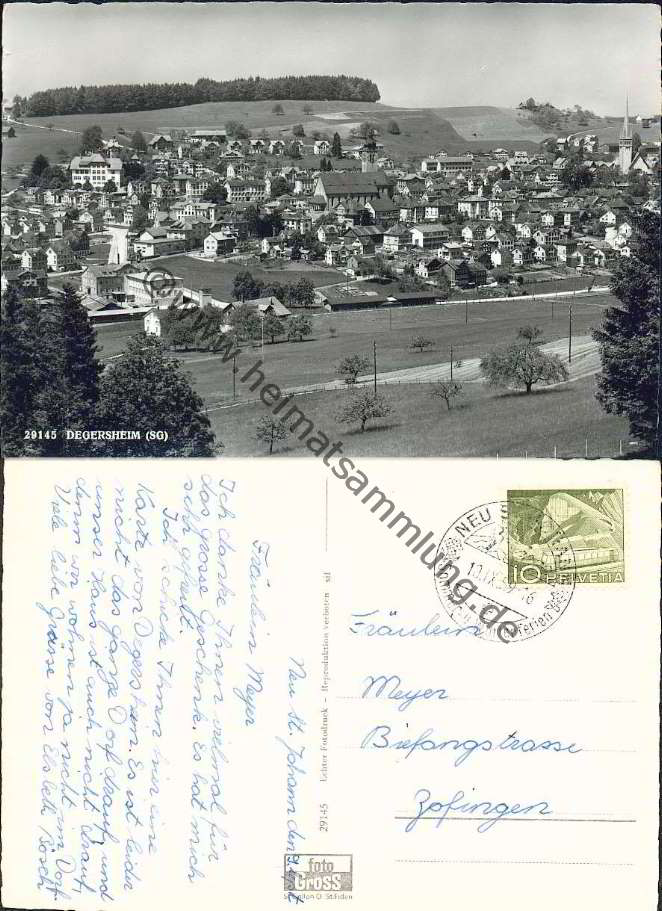 29145 DEGERSHEIM (SG)
© www.heimatsammlung.de
Neu St. Johann den
Fräulein Meyer
Ich danke Ihnen vielmal für
das grosse Geschenk. Es hat mich
sehr gefreut.
Ich schicke Ihnen hier eine
Karte von Degersheim. Es ist leider
nicht das ganze Dorf drauf, und
unser Haus ist auch nicht drauf,
denn wir wohnen ja nicht im Dorf.
Viele liebe Grüsse von Elsbeth Bösch
29145 Echter Fotodruck - Reproduktion verboten
foto
GROSS
St. Gallen O St. Fiden
NEU ST. JOHANN
10 HELVETIA
Fräulein
Meyer
Bifangstrasse
Zofingen